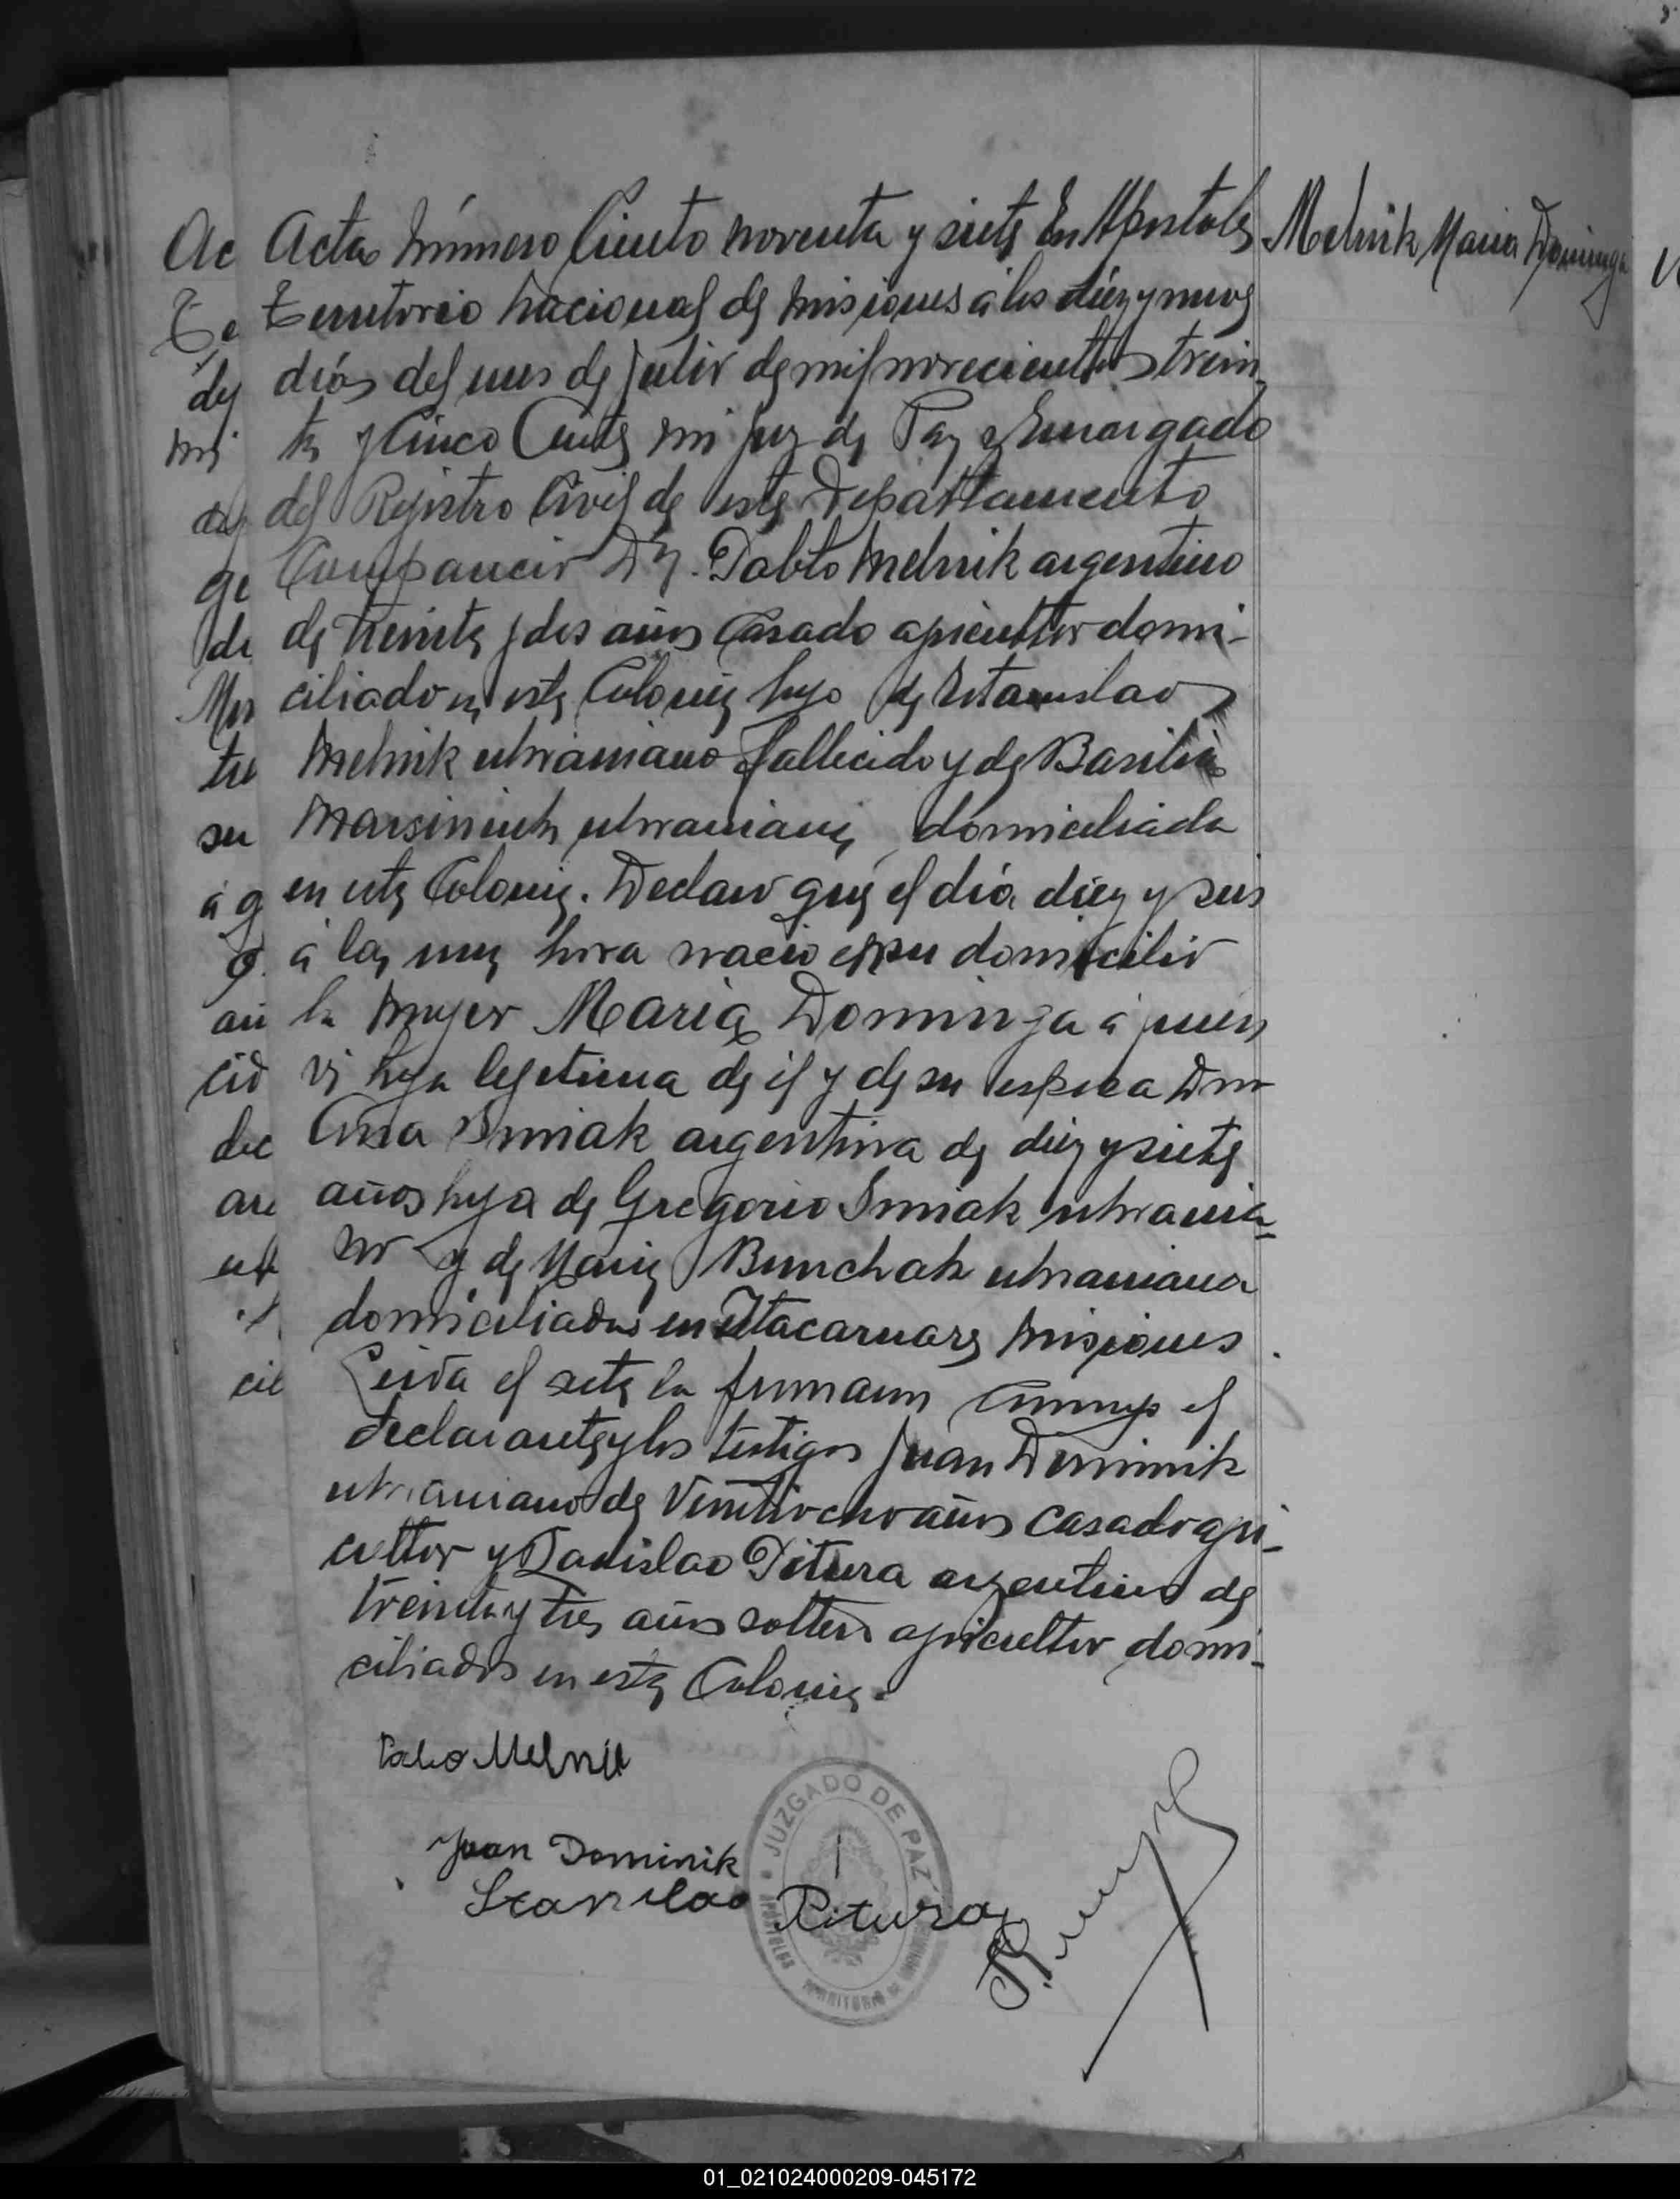 Acta Número Ciento noventa y siete En Apostoles
Melnik Maria Dominga
Territorio Nacional de Misiones á los diez y nueve
días del mes de Julio de mil novecientos trein
ta y Cinco Ante mi Juez de Paz y Encargado
del Registro Civil de este Departamento
Compareció Dn. Pablo Melnik argentino
de treinta y dos años Casado agricultor domi-
ciliado en esta Colonia hijo de Estanislao
Melnik ukraniano fallecido y de Basilia
ukraniana domiciliada
en esta Colonia. Declaro que el día diez y seis
á las una hora nacio en su domicilio
la mujer Maria Dominga á quien
vi hija legetima de él y de su esposa Dña
Ana argentina de diez y siete
años hija de Gregorio ukrania-
no y de Maria Bunchak ukraniana
domiciliados en Itacaruare Misiones
Leida el acta la firmaron Conmigo el
declarante y los testigos Juan Dominik
ukraniano de Veintiocho años casado agri-
cultor y Stanislao Pitura argentino de
treinta y tres años soltero agricultor domi-
ciliados en esta Colonia.
Pablo Melnik
Juan Dominik
Stanislao Pitura
JUZGADO DE PAZ
APOSTOLES TERRITORIO DE MISIONES
01_021024000209-045172